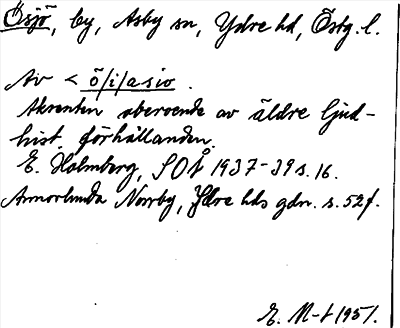 Ösjö, by, Asby sn, Ydre hd, Östg. l.
Av < ö/i/a sio.
Akcenten oberoende av äldre ljud-
hist. förhållanden.
E. Holmberg, SOÅ 1937-39 s. 16.
Norrby, Ydre hds gdn. s. 52 f.
1951.